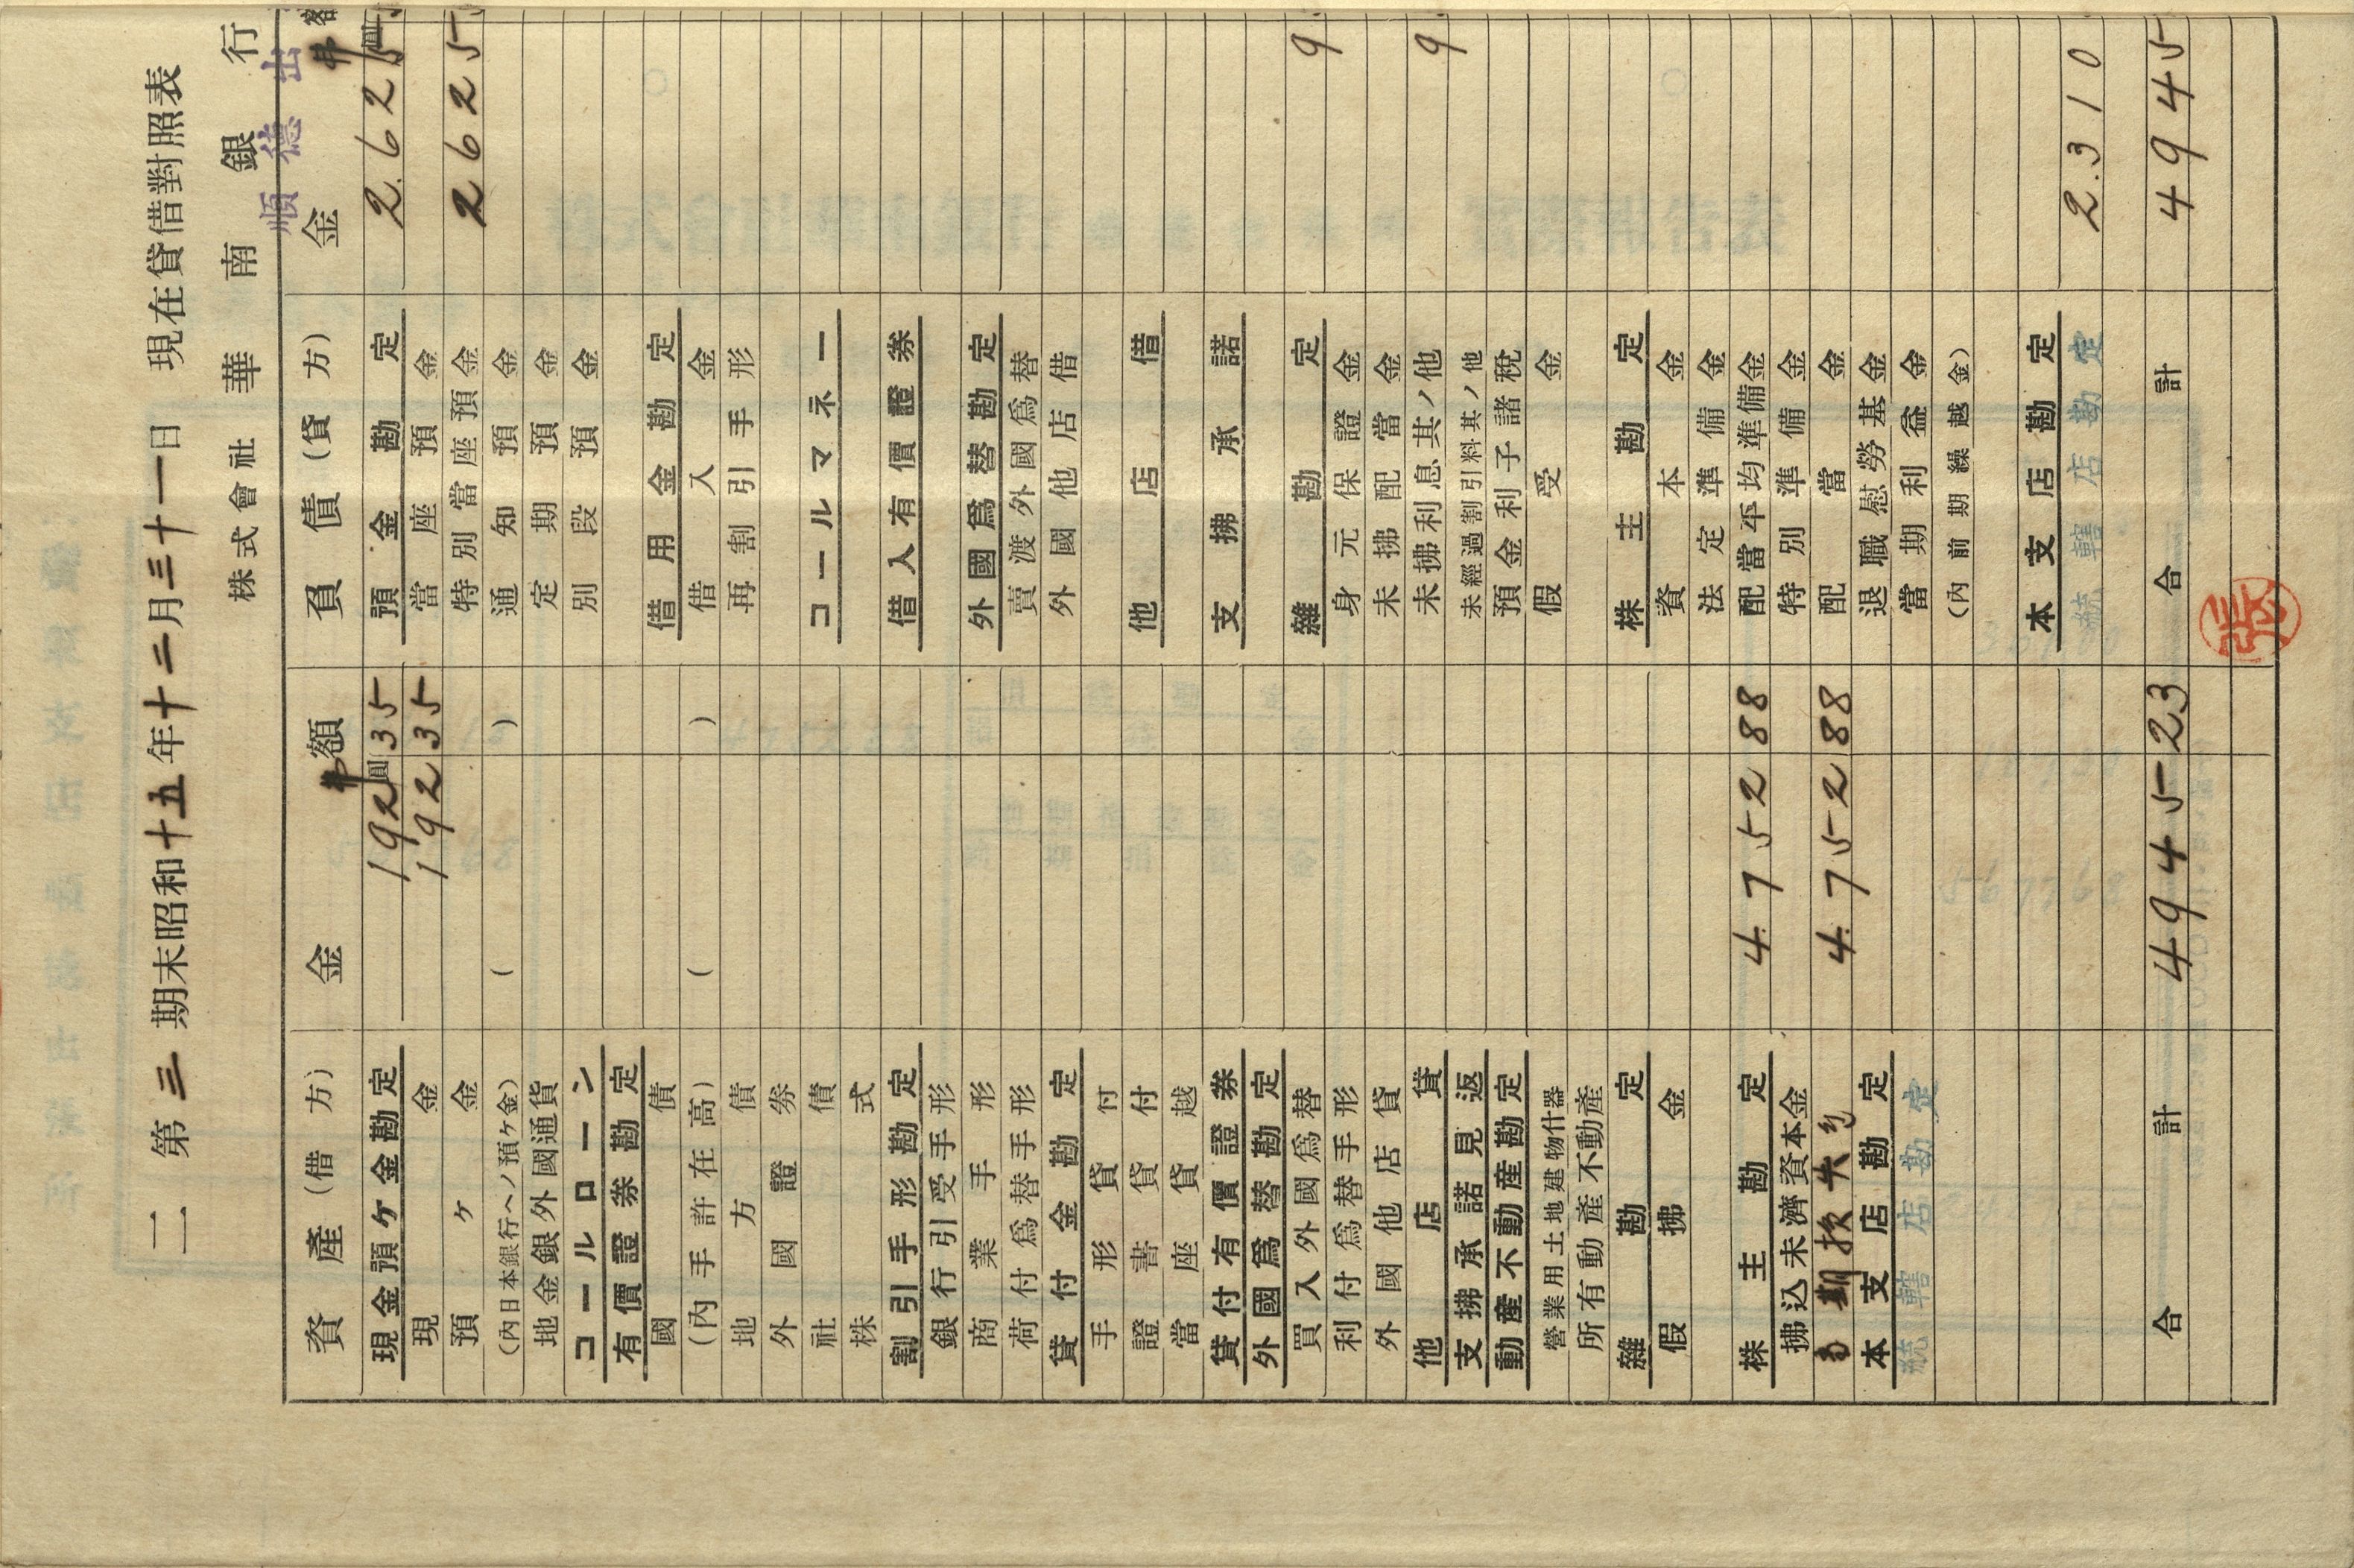 二　第三期末昭和十五年十二月三十一日　現在貸借對照表
株式會社　華南銀行
順德出
資產（借方）　金弗額　負債（貸方）　金弗
現金預ケ金勘定　192圓35　預金勘定　2.625
現金　192 35　當座預金
預ケ金　特別當座預金　2625
（內日本銀行ヘノ預ケ金）　（　）　通知預金
地金銀外國通貨　定期預金
コールローン　別段預金
有價證券勘定
國債　借用金勘定
（內手許在高）　（　）　借入金
地方債　再割引手形
外國證券
社債　コールマネー
株式
割引手形勘定　借入有價證券
銀行引受手形
商業手形　外國爲替勘定
荷付爲替手形　賣渡外國爲替
貸付金勘定　外國他店借
手形貸付
證書貸付　他店借
當座貸越
貸付有價證券　支拂承諾
外國爲替勘定
買入外國爲替　雜勘定　9
利付爲替手形　身元保證金
外國他店貸　未拂配當金
他店貸　未拂利息其ノ他　9
支拂承諾見返　未經過割引料其ノ他
動產不動產勘定　預金利子諸稅
營業用土地建物什器　假受金
所有動產不動產
雜勘定　株主勘定
假拂金　資本金
法定準備金
株主勘定　4.752 88　配當平均準備金
拂込未濟資本金　特別準備金
當期損失金　4.752 88　配當金
本支店勘定　退職慰勞基金
統轄店勘定　當期利益金
（內前期繰越金）
本支店勘定
統轄店勘定　2.310
合計　4945 23　合計　4945
張